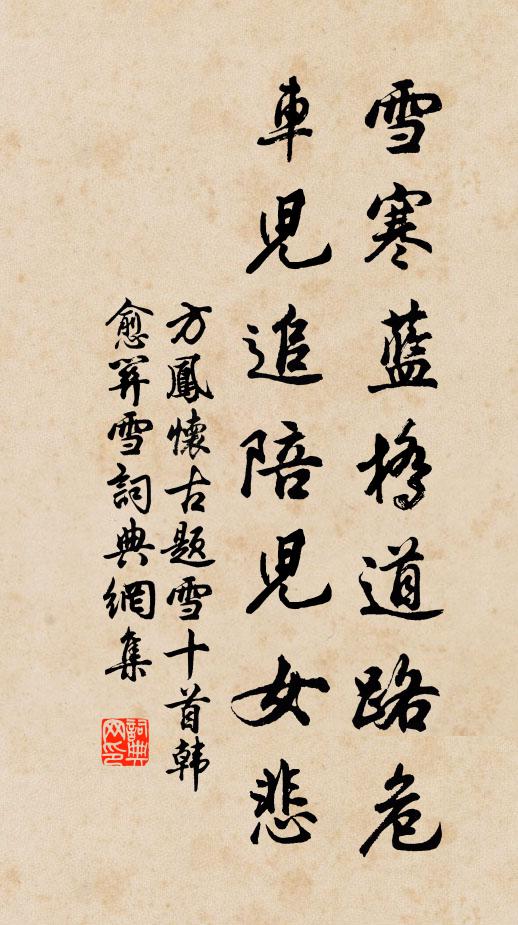 雪寒蓝橋道路危
車児追陪児女悲
方鳳懷古題雪十首韩
愈羿雪詞典網集
詞典网印